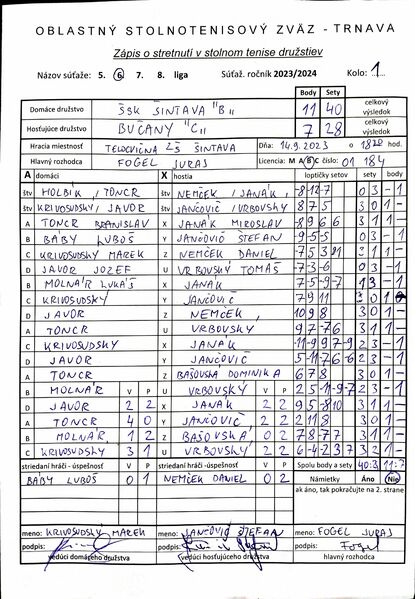 OBLASTNÝ STOLNOTENISOVÝ ZVÄZ - TRNAVA
Zápis o stretnutí v stolnom tenise družstiev
Názov súťaže: 5. 6 7. 8. liga Súťaž. ročník 2023/2024 Kolo: 1...
Body Sety
Domáce družstvo ŠSK ŠINTAVA "B" 11 40 celkový výsledok
Hosťujúce družstvo BUČANY "C" 7 28 celkový výsledok
Hracia miestnosť TELOCVIČŇA ZŠ ŠINTAVA Dňa: 14.9.2023 o 18 hod.
Hlavný rozhodca FOGEL JURAJ Licencia: M A B C číslo: 01 184
A domáci X hostia loptičky setov sety body
štv
štv KRIVOSUDSKÝ / JAVOR štv JANČOVIČ / VRBOVSKÝ 8 7 5 3 0 1 -
A TONCR BRANISLAV X JANÁK MIROSLAV
B BABY ĽUBOŠ Y JANČOVIČ ŠTEFAN -9-5-5 0 3 - 1
C KRIVOSUDSKÝ MAREK Z NEMČEK DANIEL 3 1 1 -
D JAVOR JOZEF U VRBOVSKÝ TOMÁŠ -7-3-6 0 3 - 1
B MOLNÁR LUKÁŠ X JANÁK 7-5-9-7 1 3 - 1
C KRIVOSUDSKÝ Y JANČOVIČ 7 9 11
D JAVOR Z NEMČEK 10 9 8 3 0 1 -
A TONCR U VRBOVSKÝ 9 7-7 6 3 1 1 -
C KRIVOSUDSKÝ X JANÁK -11-9 9 7-9 2 3 - 1
D JAVOR Y JANČOVIČ 5-11 7 6-6 2 3 - 1
A TONCR Z BAŠOVSKÁ DOMINIKA 6 7 8 3 0 1 -
B MOLNÁR V P U VRBOVSKÝ V P 2 3 - 1
D JAVOR 2 2 X JANÁK 2 2 9 5-8 10 3 1 1 -
A TONCR 4 0 Y JANČOVIČ 2 2 2 11 8 3 0 1 -
B MOLNÁR 1 2 Z BAŠOVSKÁ 0 2 7 8-7 7 3 1 1 -
C KRIVOSUDSKÝ 3 1 U VRBOVSKÝ 2 2 3 2 1 -
striedaní hráči - úspešnosť V P striedaní hráči - úspešnosť V P Spolu body a sety 40:28 11:7
BABY ĽUBOŠ 0 1 NEMČEK DANIEL 0 2 Námietky Áno Nie
ak áno, tak pokračujte na 2. strane
meno: KRIVOSUDSKÝ MAREK meno: JANČOVIČ ŠTEFAN meno: FOGEL JURAJ
podpis: podpis: podpis: Fogel
vedúci domáceho družstva vedúci hosťujúceho družstva hlavný rozhodca